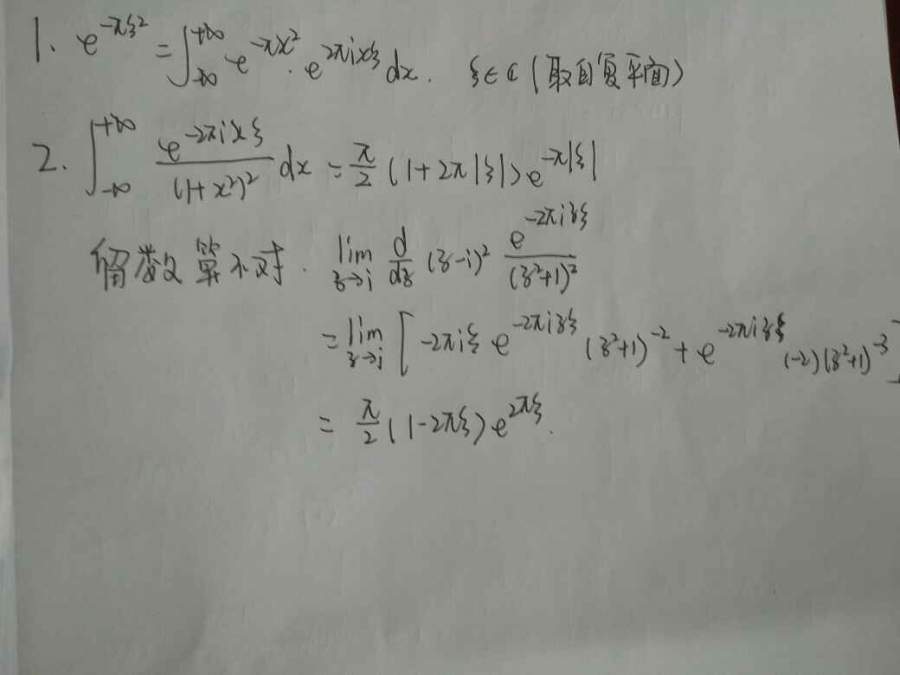 1. e^{-πξ²} = ∫_{-∞}^{+∞} e^{-πx²} · e^{2πixξ} dx. ξ∈ℂ (取自复平面)
2. ∫_{-∞}^{+∞} e^{-2πixξ}/(1+x²)² dx = π/2 (1+2π|ξ|) e^{-π|ξ|}
留数算不对. lim_{z→i} d/dz (z-i)² e^{-2πizξ}/(z²+1)²
= lim_{z→i} [ -2πiξ e^{-2πizξ} (z²+1)^{-2} + e^{-2πizξ} (-2)(z²+1)^{-3} ]
= π/2 (1-2πξ) e^{2πξ}.